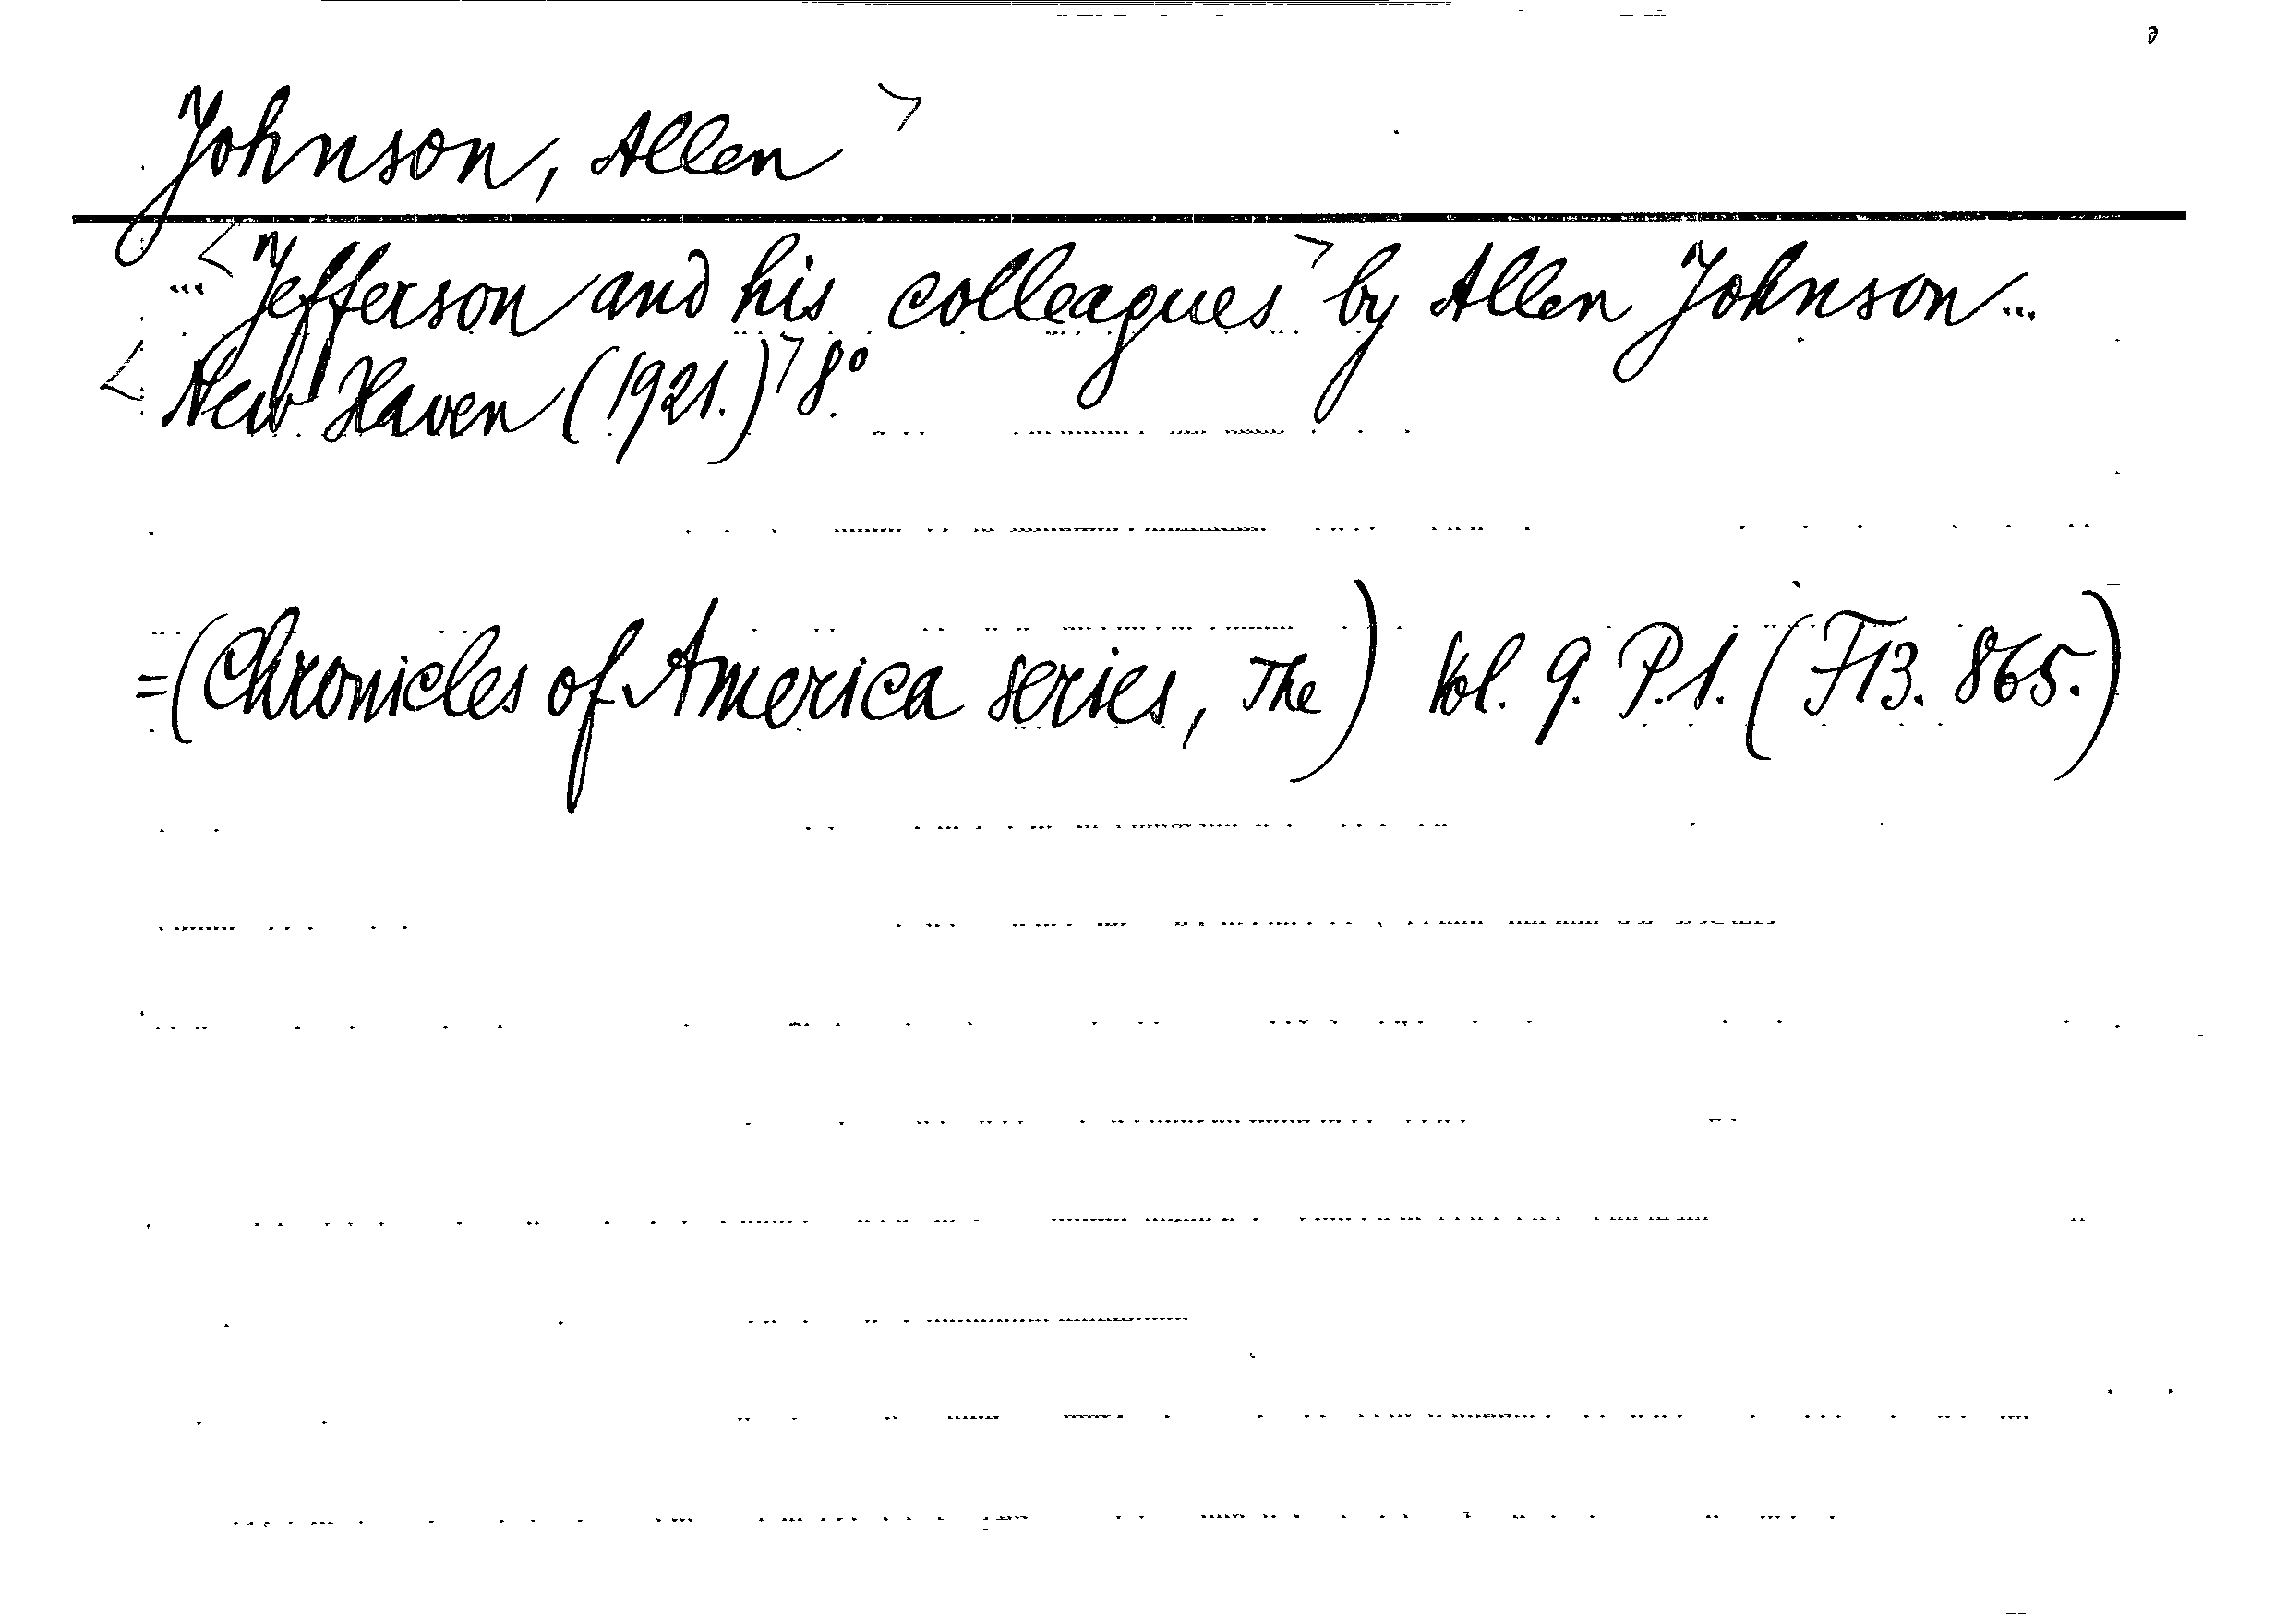 Johnson, Allen >
...< Jefferson and his colleagues > by Allen Johnson...
< New Haven (1921.) > 8°.
=(Chronicles of America series, The) Vol. 9. P.1. (F13. 865.)